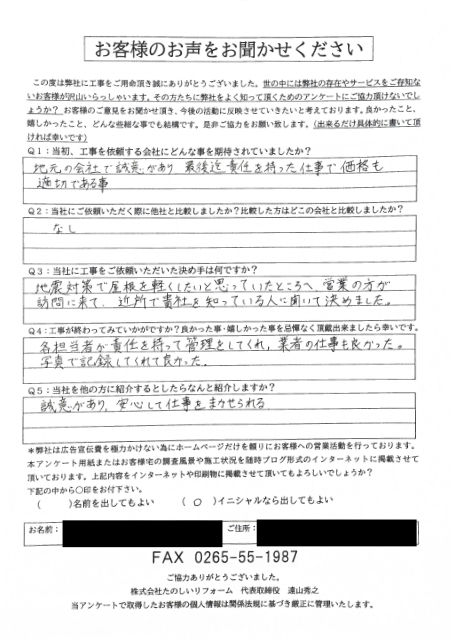 お客様のお声をお聞かせください
この度は弊社に工事をご用命頂き誠にありがとうございました。世の中には弊社の存在やサービスをご存知な
いお客様が沢山いらっしゃいます。その方たちに弊社をよく知って頂くためのアンケートにご協力頂けないでし
ょうか？ お客様のご意見をお聞かせ頂き、今後の活動に反映させていきたいと考えております。良かったこと、
嬉しかったこと、どんな些細な事でも結構です。是非ご協力をお願い致します。（出来るだけ具体的に書いて頂
ければ幸いです）
Q1：当初、工事を依頼する会社にどんな事を期待されていましたか？
地元の会社で誠意があり 最後迄責任を持った仕事で価格も
適切である事
Q2：当社にご依頼いただく際に他社と比較しましたか？比較した方はどこの会社と比較しましたか？
なし
Q3：当社に工事をご依頼いただいた決め手は何ですか？
地震対策で屋根を軽くしたいと思っていたところへ、営業の方が
訪問に来て、近所で貴社を知っている人に聞いて決めました。
Q4：工事が終わってみていかがですか？良かった事・嬉しかった事を忌憚なく頂戴出来ましたら幸いです。
各担当者が責任を持って管理をしてくれ、業者の仕事も良かった。
写真で記録してくれて良かった。
Q5：当社を他の方に紹介するとしたらなんと紹介しますか？
誠意があり、安心して仕事をまかせられる
＊弊社は広告宣伝費を極力かけない為にホームページだけを頼りにお客様への営業活動を行っております。
本アンケート用紙またはお客様宅の調査風景や施工状況を随時ブログ形式のインターネットに掲載させて
頂いております。上記内容をインターネットや印刷物に掲載させて頂いてもよろしいでしょうか？
下記の中から〇印をお付下さい。
（ ）名前を出してもよい （ ○ ）イニシャルなら出してもよい
お名前： ご住所：
FAX 0265-55-1987
ご協力ありがとうございました。
株式会社たのしいリフォーム 代表取締役 遠山秀之
当アンケートで取得したお客様の個人情報は関係法規に基づき厳正に管理いたします。